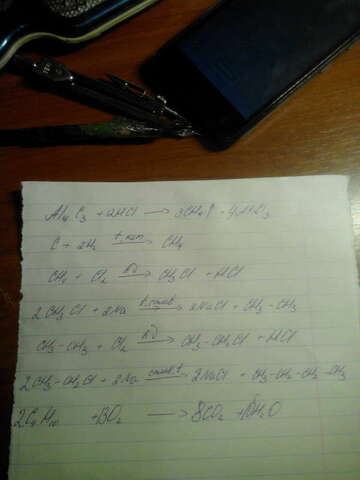 Al₄C₃ + 12HCl ⟶ 3CH₄↑ + 4AlCl₃
C + 2H₂ ⟶ CH₄
CH₄ + Cl₂ ⟶ CH₃Cl + HCl
2CH₃Cl + 2Na ⟶ 2NaCl + CH₃-CH₃
CH₃-CH₃ + Cl₂ ⟶ CH₃-CH₂Cl + HCl
2CH₃-CH₂Cl + 2Na ⟶ 2NaCl + CH₃-CH₂-CH₂-CH₃
2C₄H₁₀ + BO₂ ⟶ 8CO₂ + H₂O